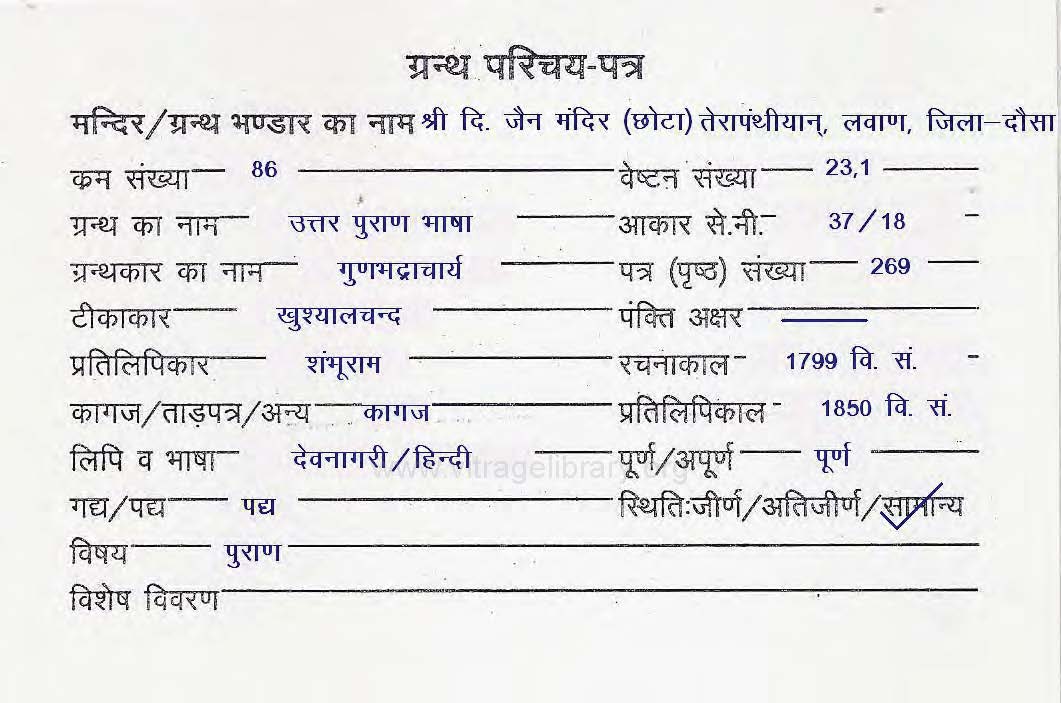 ग्रन्थ परिचय-पत्र
मन्दिर/ग्रन्थ भण्डार का नाम श्री दि. जैन मंदिर (छोटा) तेरापंथीयान्, लवाण, जिला-दौसा
कम संख्या 86 वेष्टन संख्या 23,1
ग्रन्थ का नाम उत्तर पुराण भाषा आकार से.मी. 37/18
ग्रन्थकार का नाम गुणभद्राचार्य पत्र (पृष्ठ) संख्या 269
टीकाकार खुश्यालचन्द पंक्ति अक्षर
प्रतिलिपिकार शंभूराम रचनाकाल 1799 वि. सं.
कागज/ताड़पत्र/अन्य कागज प्रतिलिपिकाल 1850 वि. सं.
लिपि व भाषा देवनागरी/हिन्दी पूर्ण/अपूर्ण पूर्ण
www.vitragelibrary.org
गद्य/पद्य पद्य स्थितिःजीर्ण/अतिजीर्ण/सामान्य
विषय पुराण
विशेष विवरण